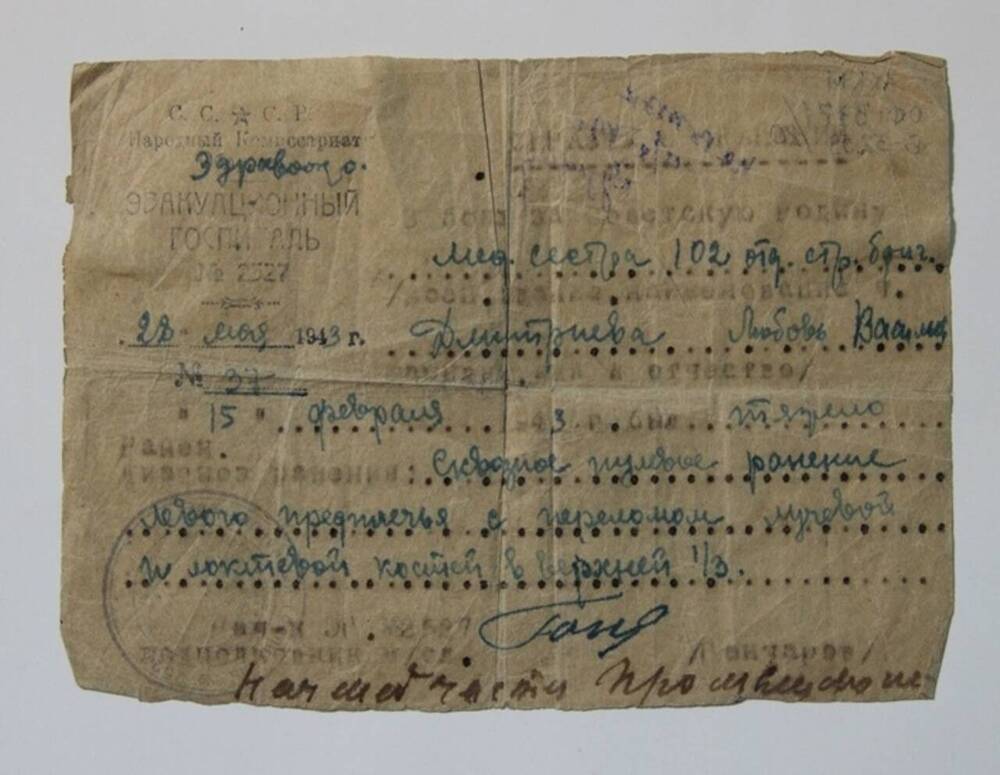 С. С. С. Р.
Народный Комиссариат
Здравоохр.
ЭВАКУАЦИОННЫЙ
ГОСПИТАЛЬ
№ 2527
28 мая 1943 г.
№ 37
В боях за Советскую родину
Мед. сестра 102 отд. стр. бриг.
Дмитриева Любовь Васил
имя и отчество/
" 15 " февраля 1943 г. был тяжело
Ранен.
Диагноз ранения: Сквозное пулевое ранение
левого предплечья с переломом лучевой
и локтевой костей в верхней 1/3.
Нач-к ЭГ №2527
подполковник м/сл. /Гончаров/
Нач мед части